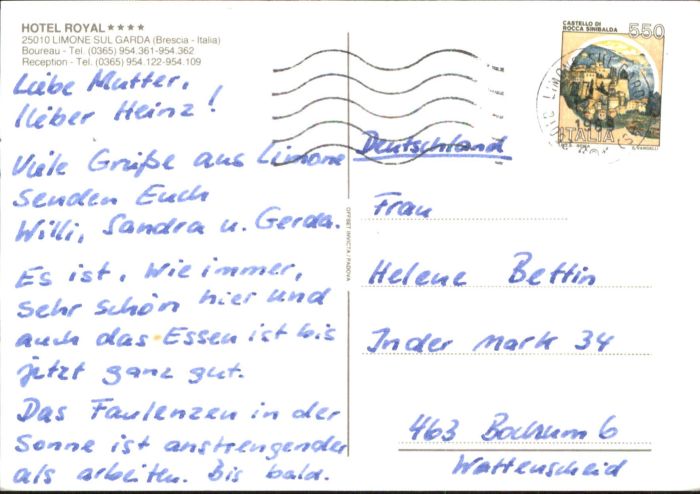 HOTEL ROYAL ★★★★
25010 LIMONE SUL GARDA (Brescia - Italia)
Boureau - Tel. (0365) 954.361-954.362
Reception - Tel. (0365) 954.122-954.109
Liebe Mutter,
lieber Heinz!
Viele Grüße aus Limone
senden Euch
Willi, Sandra u. Gerda.
Es ist, wie immer,
sehr schön hier und
auch das Essen ist bis
jetzt ganz gut.
Das Faulenzen in der
Sonne ist anstrengender
als arbeiten. Bis bald.
OFFSET INVICTA / PADOVA
CASTELLO DI
ROCCA SINIBALDA
550
ITALIA
LIMONE SUL GARDA
Deutschland
Frau
Helene Bettin
In der Mark 34
463 Bochum 6
Wattenscheid